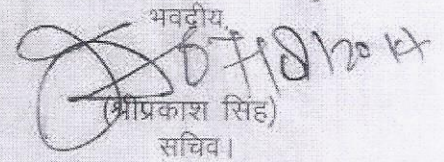 भवदीय,
07/8/2014
(श्रीप्रकाश सिंह)
सचिव।